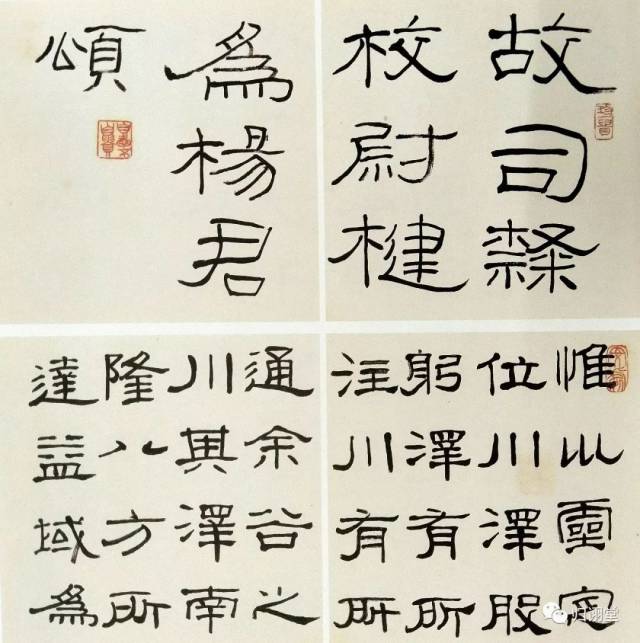 故司隸
校尉楗
爲楊君
頌
惟巛靈定
位川澤股
躬澤有所
注川有所
通余谷之
川其澤南
隆八方所
達益域爲
归诩堂